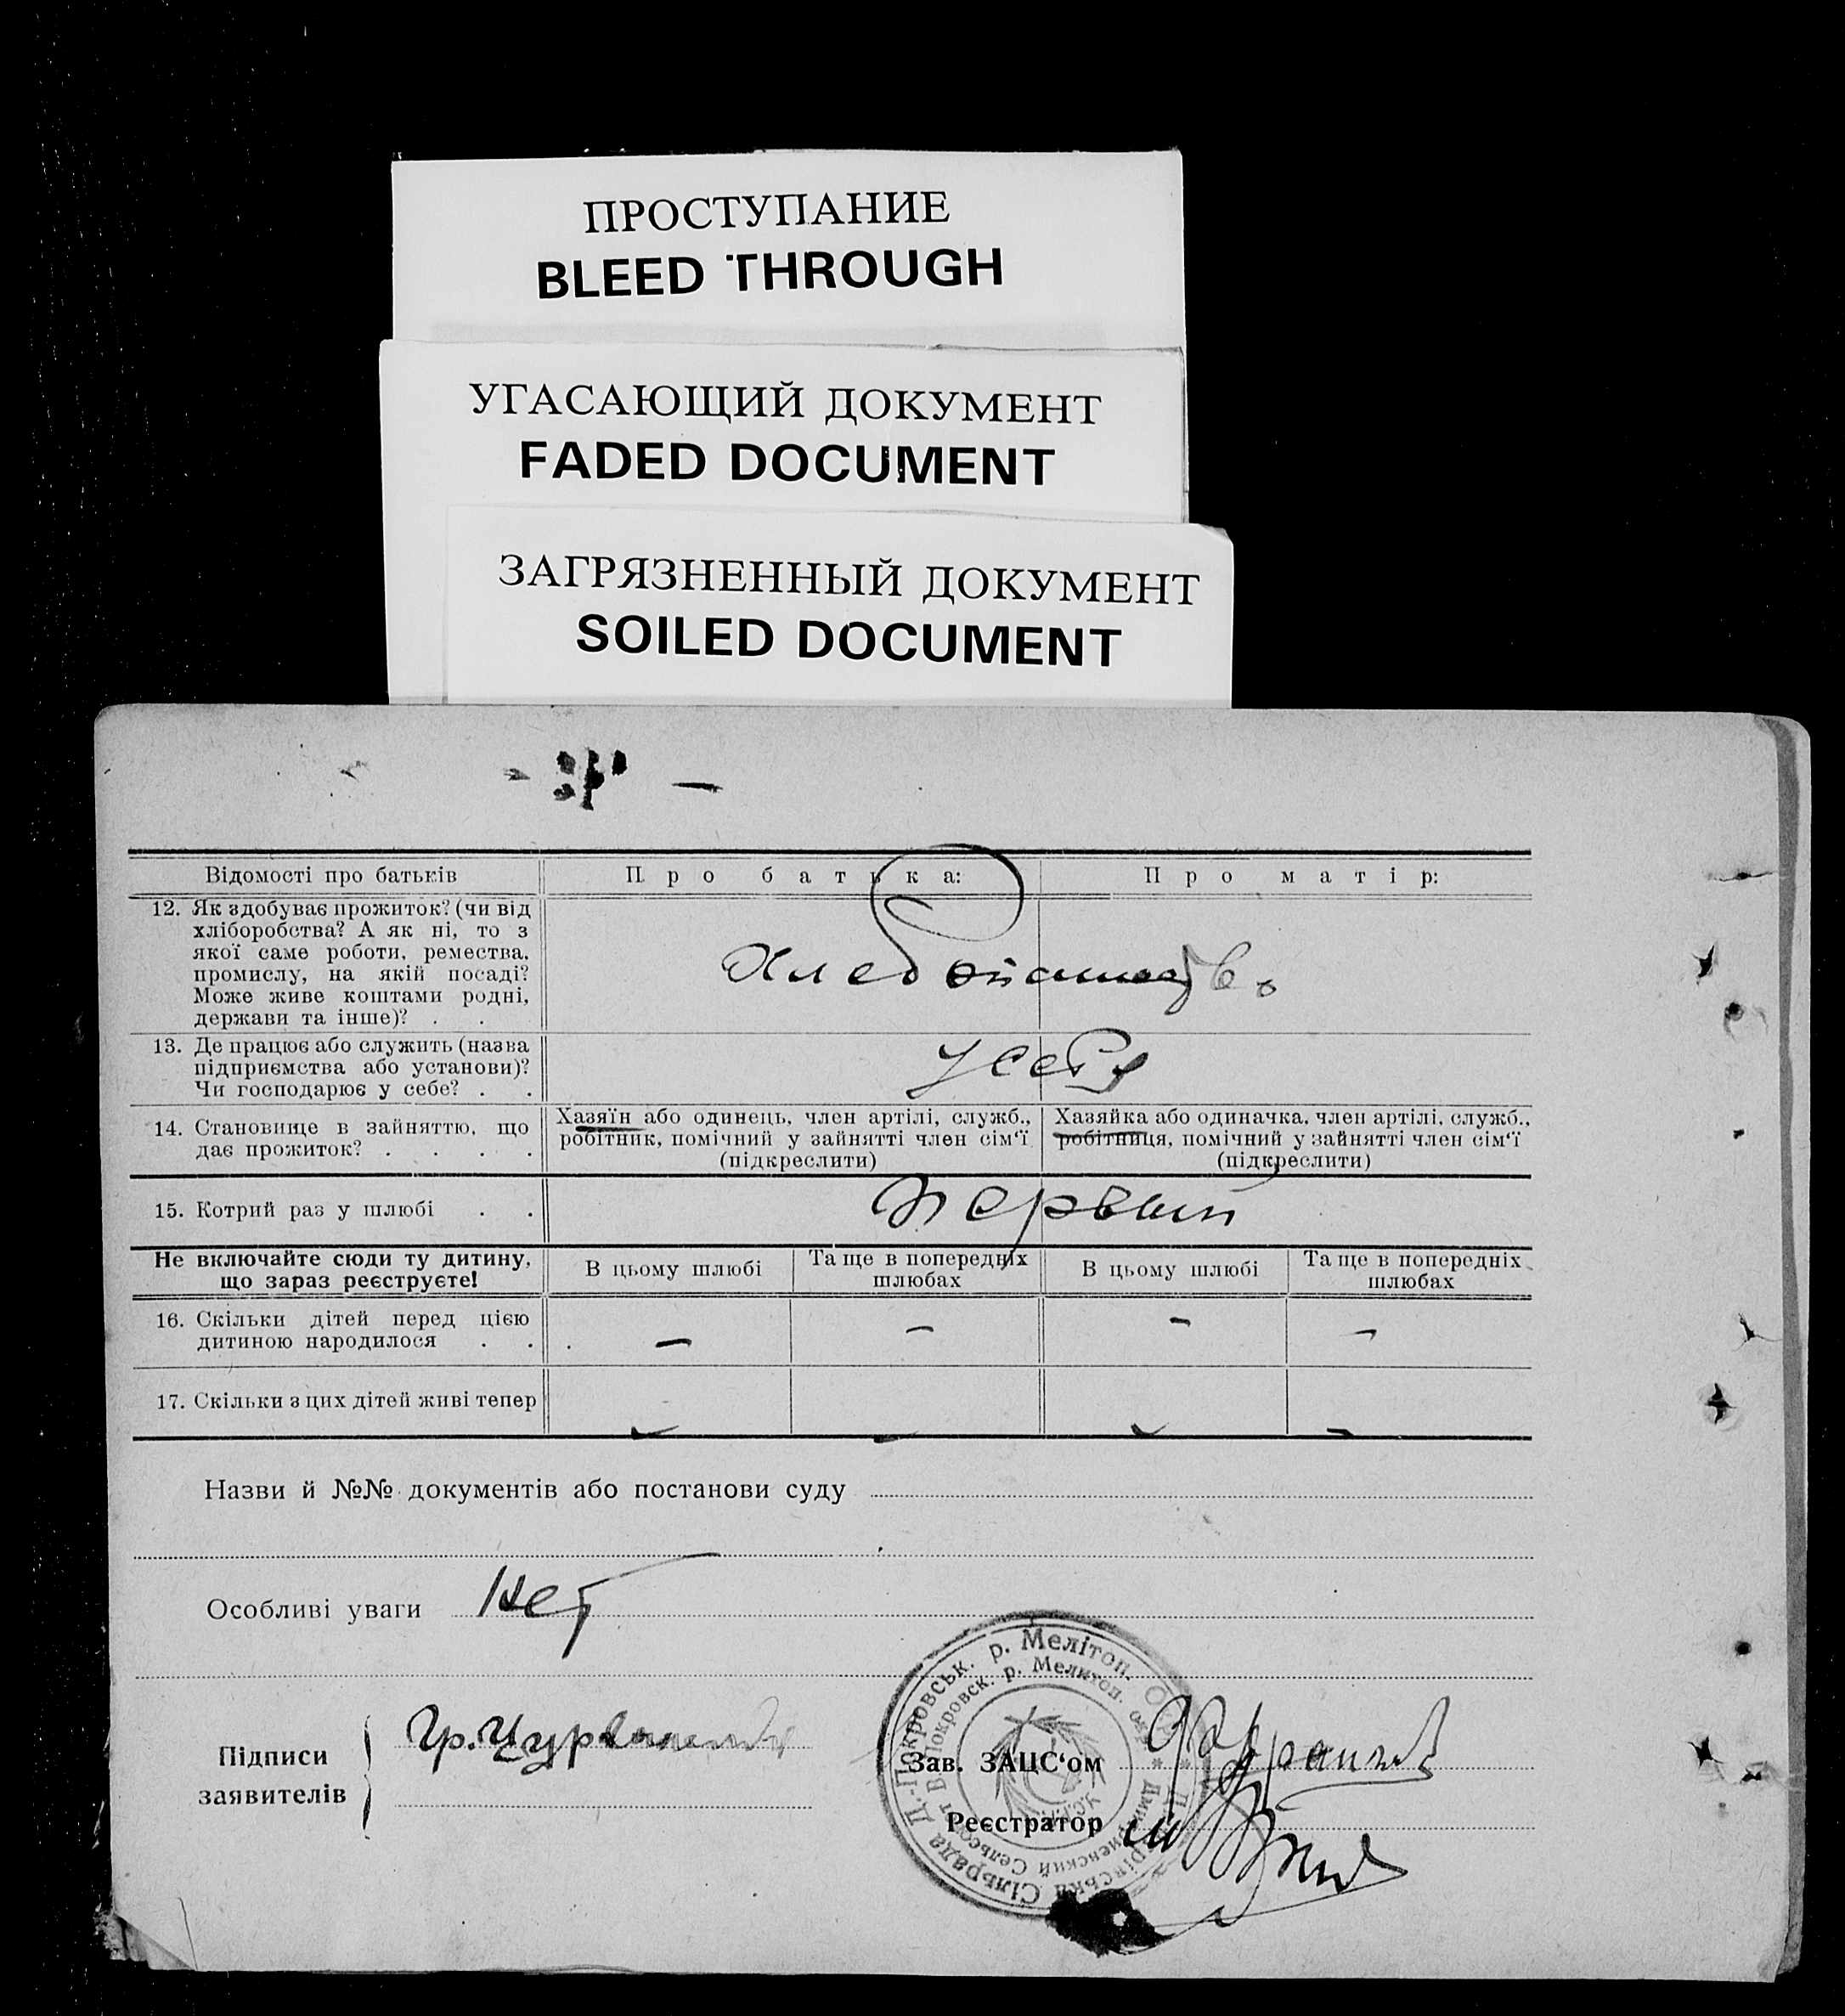 ПРОСТУПАНИЕ
BLEED THROUGH
УГАСАЮЩИЙ ДОКУМЕНТ
FADED DOCUMENT
ЗАГРЯЗНЕННЫЙ ДОКУМЕНТ
SOILED DOCUMENT
Відомості про батьків
Про батька:
Про матір:
12. Як здобуває прожиток? (чи від
хліборобства? А як ні, то з
якої саме роботи, ремества,
промислу, на якій посаді?
Може живе коштами родні,
держави та інше)? . .
Хлебопашество
13. Де працює або служить (назва
підприємства або установи)?
Чи господарює у себе? . .
У себя
14. Становище в зайняттю, що
дає прожиток? . . . .
Хазяїн або одинець, член артілі, служб.,
робітник, помічний у зайнятті член сім'ї
(підкреслити)
Хазяйка або одиначка, член артілі, служб.,
робітниця, помічний у зайнятті член сім'ї
(підкреслити)
15. Котрий раз у шлюбі . .
Первый
Не включайте сюди ту дитину,
що зараз реєструєте!
В цьому шлюбі
Та ще в попередніх
шлюбах
В цьому шлюбі
Та ще в попередніх
шлюбах
16. Скільки дітей перед цією
дитиною народилося . .
— — — —
17. Скільки з цих дітей живі тепер
Назви й №№ документів або постанови суду
Особливі уваги
Нет
Підписи
заявителів
Гр.
Зав. ЗАЦС'ом
Реєстратор
Сільрада Д.-Покровськ. р. Мелітоп.
Покровск. р. Мелитоп.